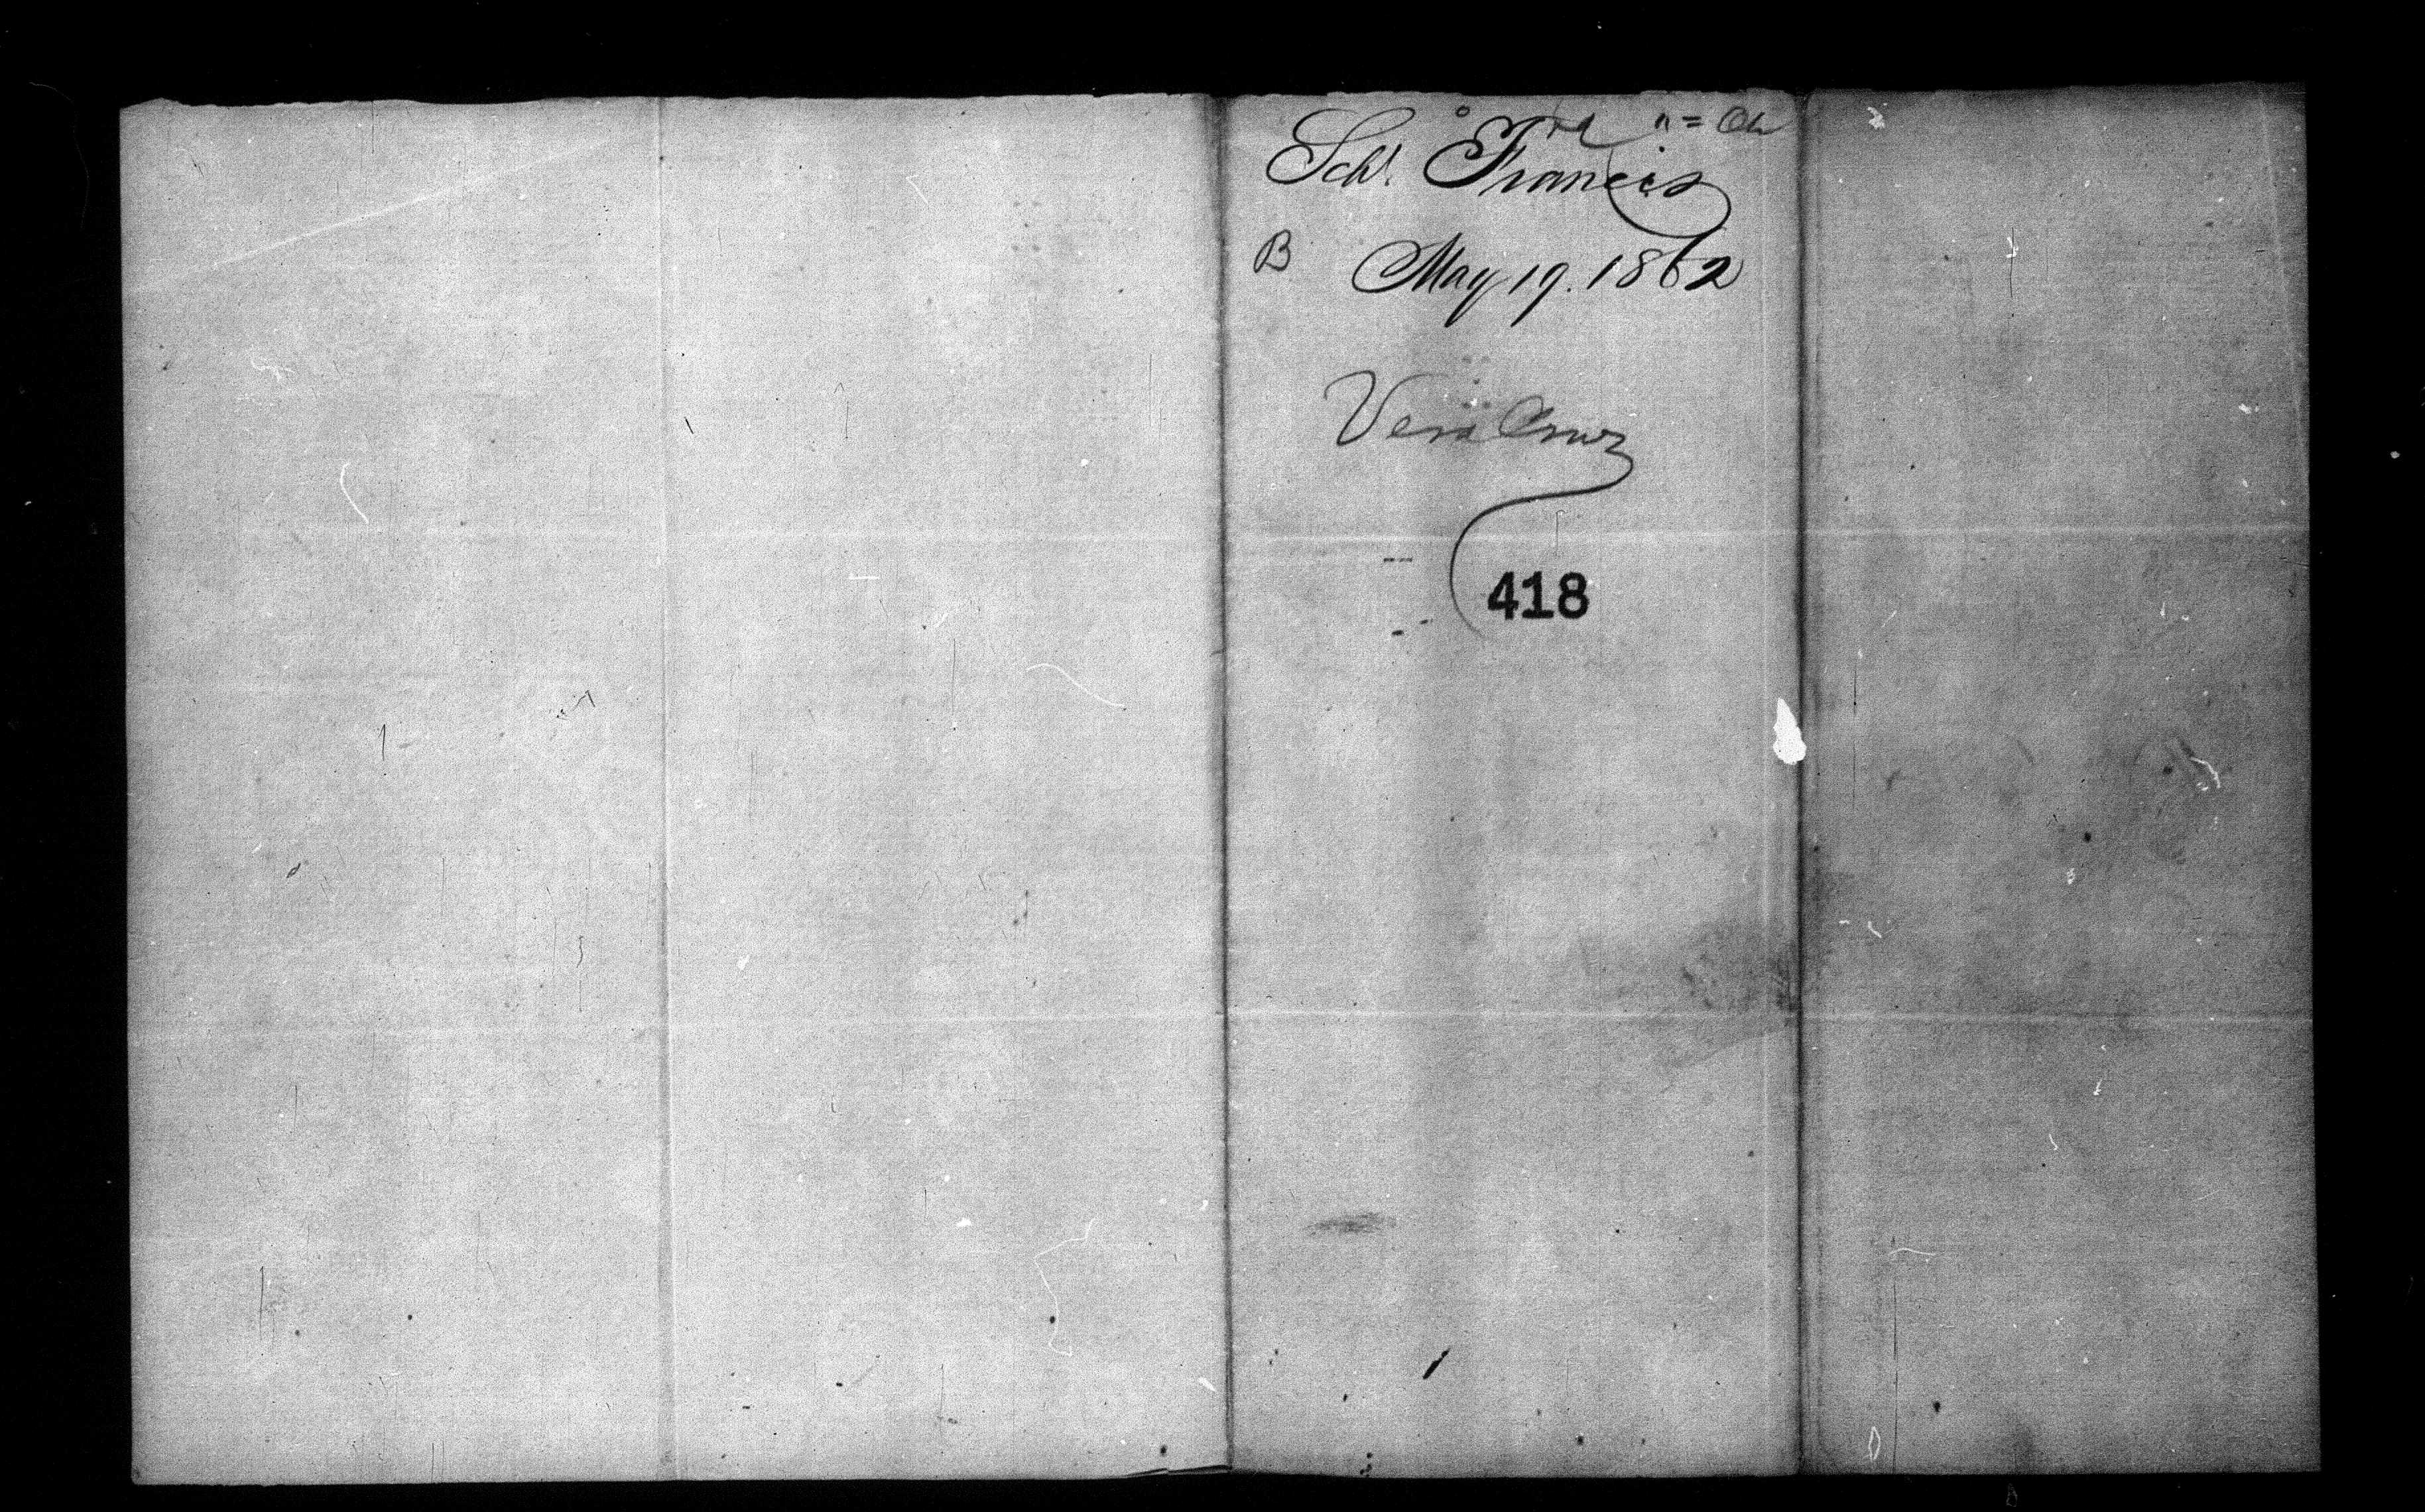 Schr. Francis
B May 19. 1862
Vera Cruz
418